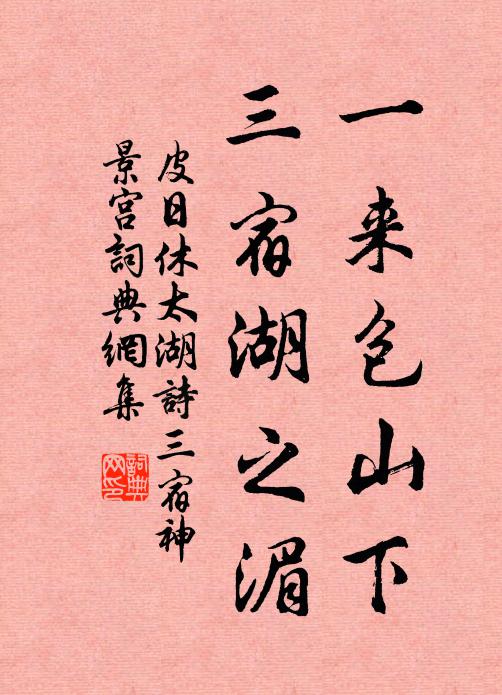 一来包山下
三宿湖之湄
皮日休太湖詩三宿神
景宮詞典網集
詞典網印